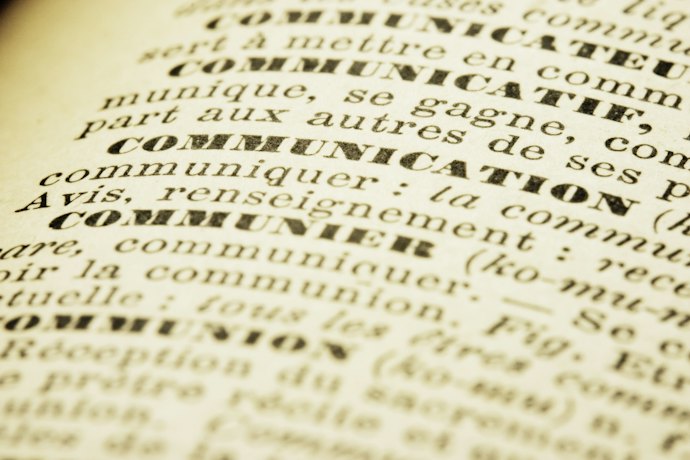 COMMUNICATEU
sert à mettre en comm
COMMUNICATIF,
munique, se gagne, com
part aux autres de ses p
COMMUNICATION (k
communiquer : la commu
Avis, renseignement : rece
COMMUNIER (ko-mu-n
are, communiquer. — Se c
oir la communion. Fig. Etr
ctuelle : tous les êtres comm
OMMUNION (ko-mu) n. f
Réception du sacrement
e prêtre récite et
union.